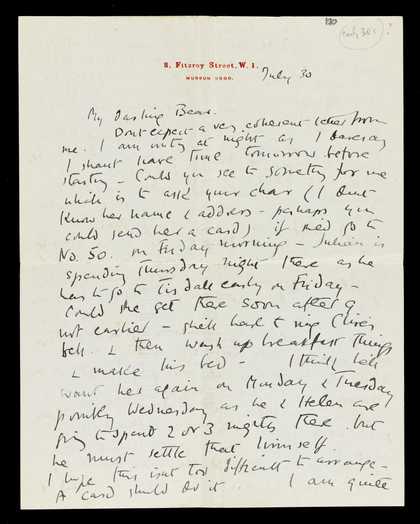 180
(early 30s)?
8, Fitzroy Street, W. 1.
MUSEUM
July 30
My Darling Bear.
Dont expect a very coherent letter from
me. I am writing at night as I daresay
I shant have time tomorrow before
starting – Could you see to something for me
which is to ask your char (I dont
know her name & address – perhaps you
could send her a card) if she'd go to
No. 50. on Friday morning – Julian is
spending Thursday night there as he
has to go to Tisdall early on Friday –
Could she get there soon after 9
not earlier – she'll have to ring Clive's
bell. & then wash up breakfast things
& make his bed – I think he'll
want her again on Monday & Tuesday
possibly Wednesday as he & Helen are
going to spend 2 or 3 nights there. but
he must settle that himself.
I hope this isnt too difficult to arrange –
A card should do it. I am quite